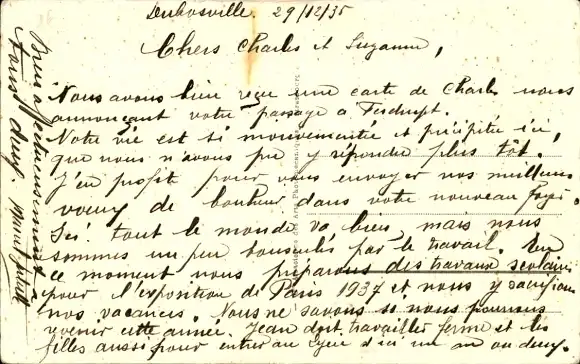 29/12/35
Chers Charles et Suzanne,
Nous avons bien reçu une carte de Charles nous
annonçant votre passage à Ferdrupt.
Notre vie est si mouvementée et précipitée ici,
que nous n'avons pu y répondre plus tôt.
J'en profite pour vous envoyer nos meilleurs
vœux de bonheur dans votre nouveau foyer.
Ici tout le monde va bien, mais nous
sommes un peu bousculés par le travail. En
ce moment nous préparons des travaux scolaires
pour l'exposition de Paris 1937 et nous y sacrifions
nos vacances. Nous ne savons si nous pourrons
venir cette année. Jean doit travailler ferme et les
filles aussi pour entrer au lycée d'ici un an ou deux.
Bien affectueusement à
tous deux